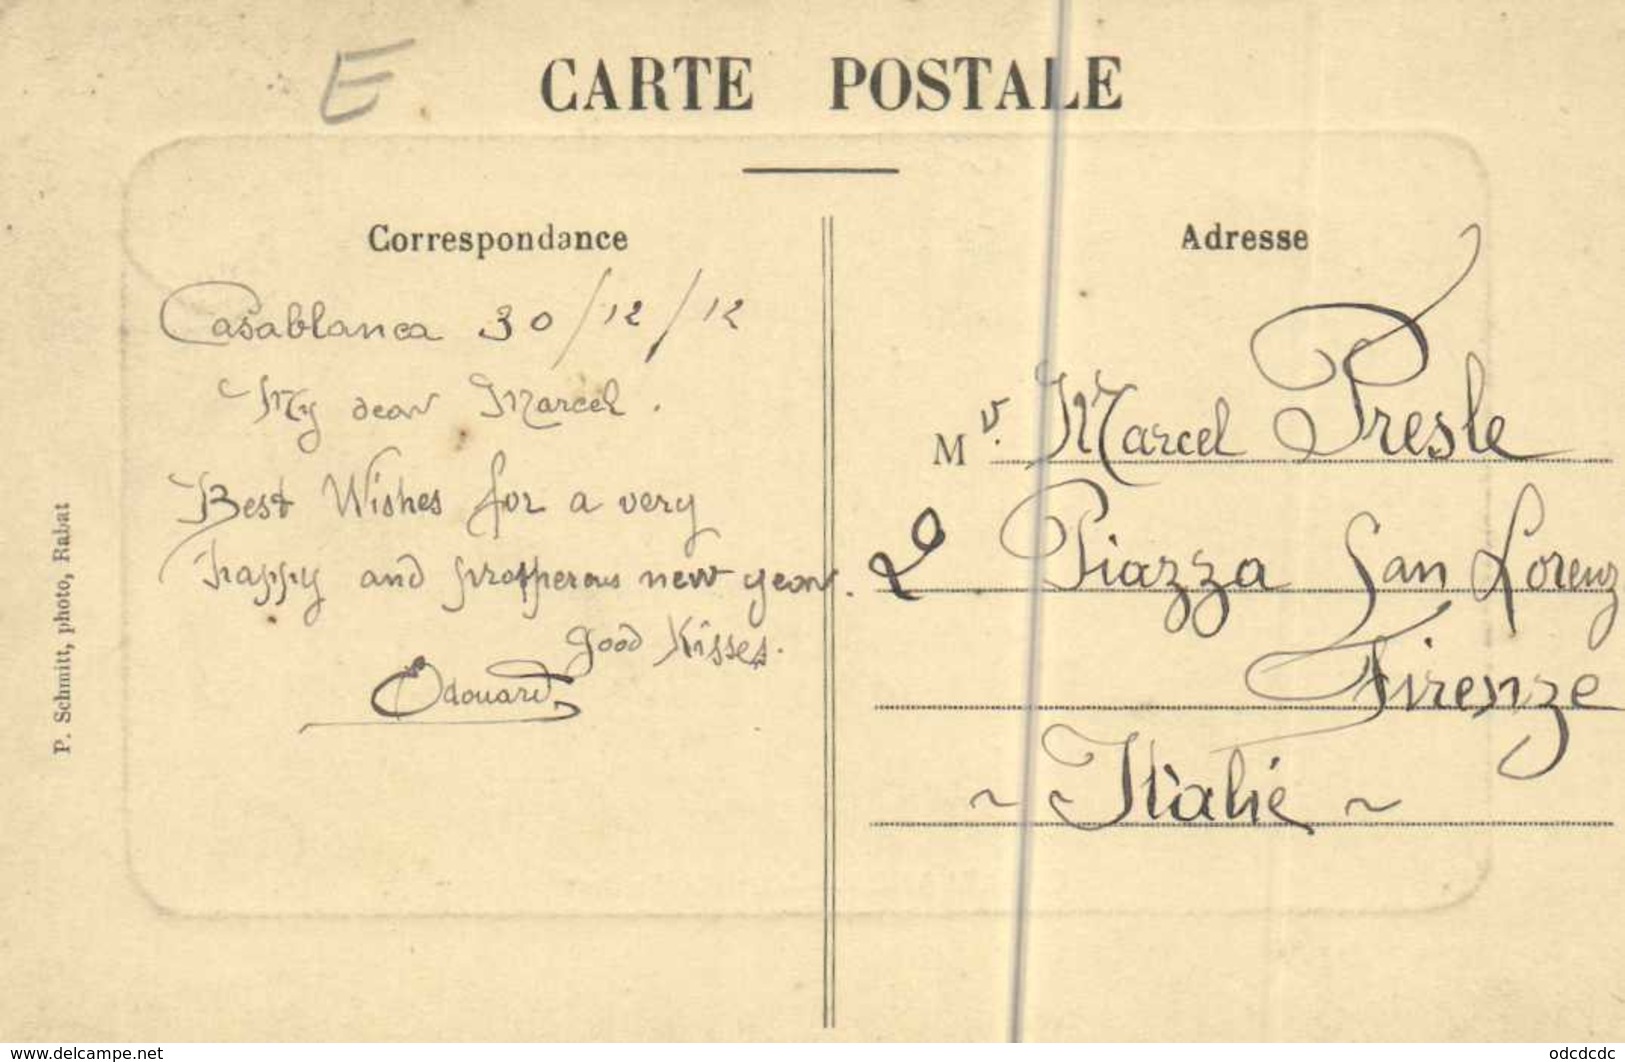 E
CARTE POSTALE
Correspondance
Casablanca 30/12/12
My dear Marcel.
Best Wishes for a very
happy and prosperous new year.
good Kisses.
Edouard
Adresse
Mr. Marcel Presle
2 Piazza San Lorenz
Firenze
~ Italie ~
P. Schmitt, photo, Rabat
www.delcampe.net
odcdcdc